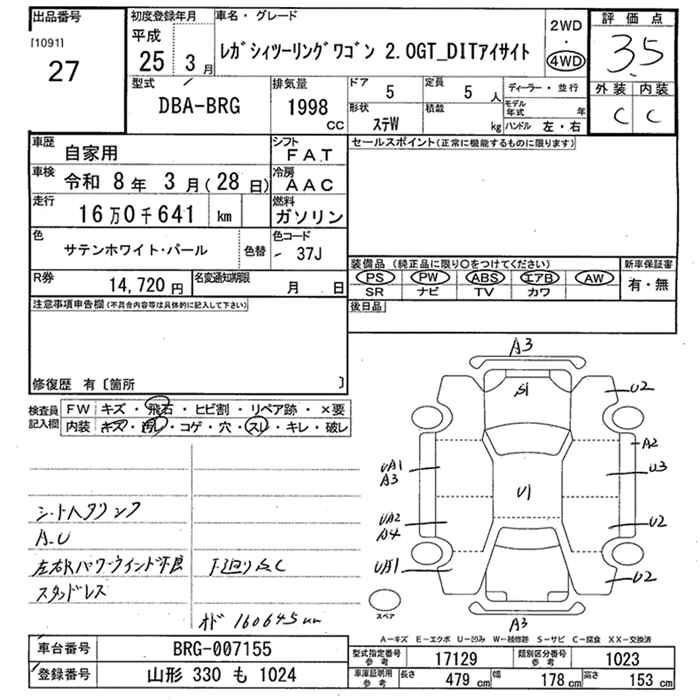 出品番号
[1091]
27
初度登録年月
平成
25 3月
車名・グレード
レガシィツーリングワゴン 2.0GT_DITアイサイト
2WD
・
4WD
評価点
3.5
外装 内装
C C
型式
DBA-BRG
排気量
1998
CC
ドア
5
定員
5 人
形状
ステW
積載
kg
ディーラー・並行
モデル年式 年
ハンドル 左・右
車歴
自家用
車検
令和 8年 3月(28日)
走行
16万0千641 km
色
サテンホワイト・パール
色替
シフト
FAT
冷房
AAC
燃料
ガソリン
色コード
37J
R券
14,720円
名変通知期限
月 日
注意事項申告欄(不具合内容等は具体的に記入して下さい)
修復歴 有〔箇所 〕
セールスポイント(正常に機能するものに限ります)
装備品 (純正品に限り○をつけてください)
PS PW ABS エアB AW
SR ナビ TV カワ
新車保証書
有・無
後日品
検査員記入欄
FW キズ・飛石・ヒビ割・リペア跡・×要
内装 キズ・汚レ・コゲ・穴・スレ・キレ・破レ
シートヘタリ
A.U
左右Rパワーウインド不良
スタッドレス
下廻りS.C
オド 160645km
A3
S1
U2
A2
U3
U2
U2
U1
UA1
A3
UA2
A4
UB1
A3
スペア
A-キズ E-エクボ U-凹み W-補修跡 S-サビ C-腐食 XX-交換済
車台番号 BRG-007155
登録番号 山形 330 も 1024
型式指定番号 参考 17129 類別区分番号 参考 1023
車庫証明用 参考 長さ 479 cm 幅 178 cm 高さ 153 cm